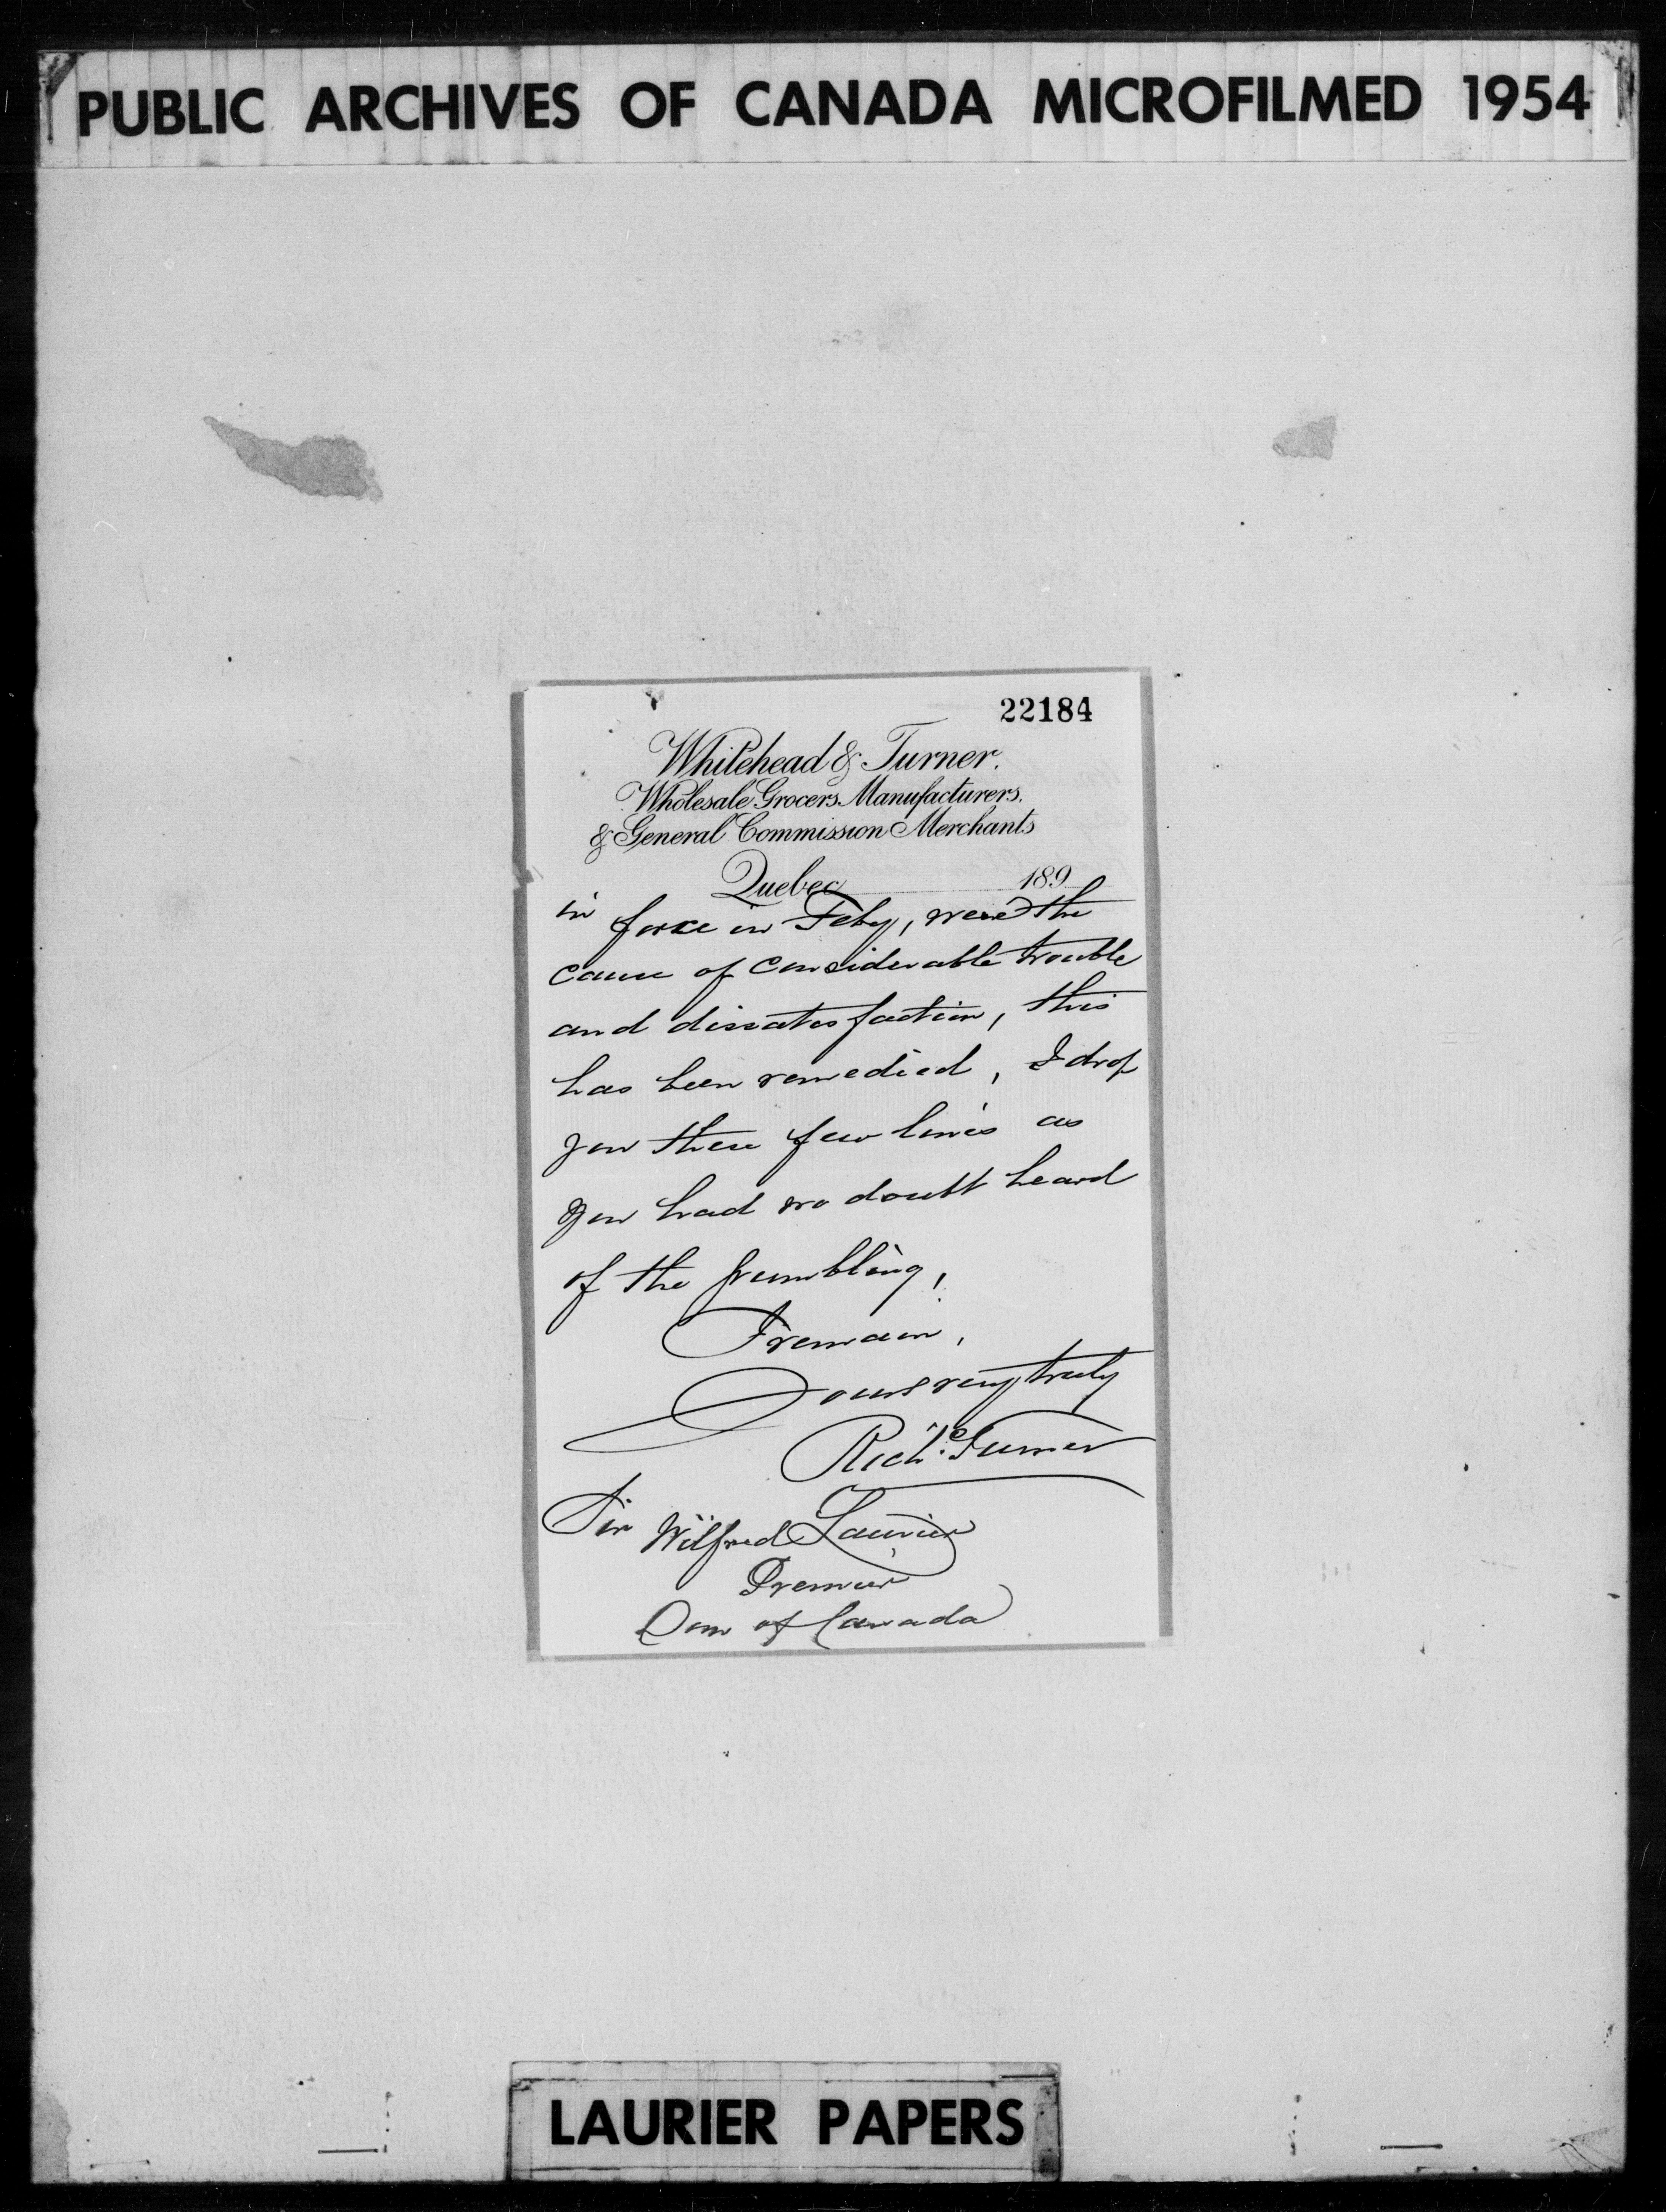 PUBLIC ARCHIVES OF CANADA MICROFILMED 1954
22184
Whitehead & Turner.
Wholesale Grocers. Manufacturers.
& General Commission Merchants
Quebec 189
in force in Feby, were the
cause of considerable trouble
and dissatisfaction, this
has been remedied, I drop
you these few lines as
you had no doubt heard
of the grumbling,
I remain,
Yours very truly
Richd Turner
Sir Wilfred Laurier
Premier
Dom of Canada
LAURIER PAPERS